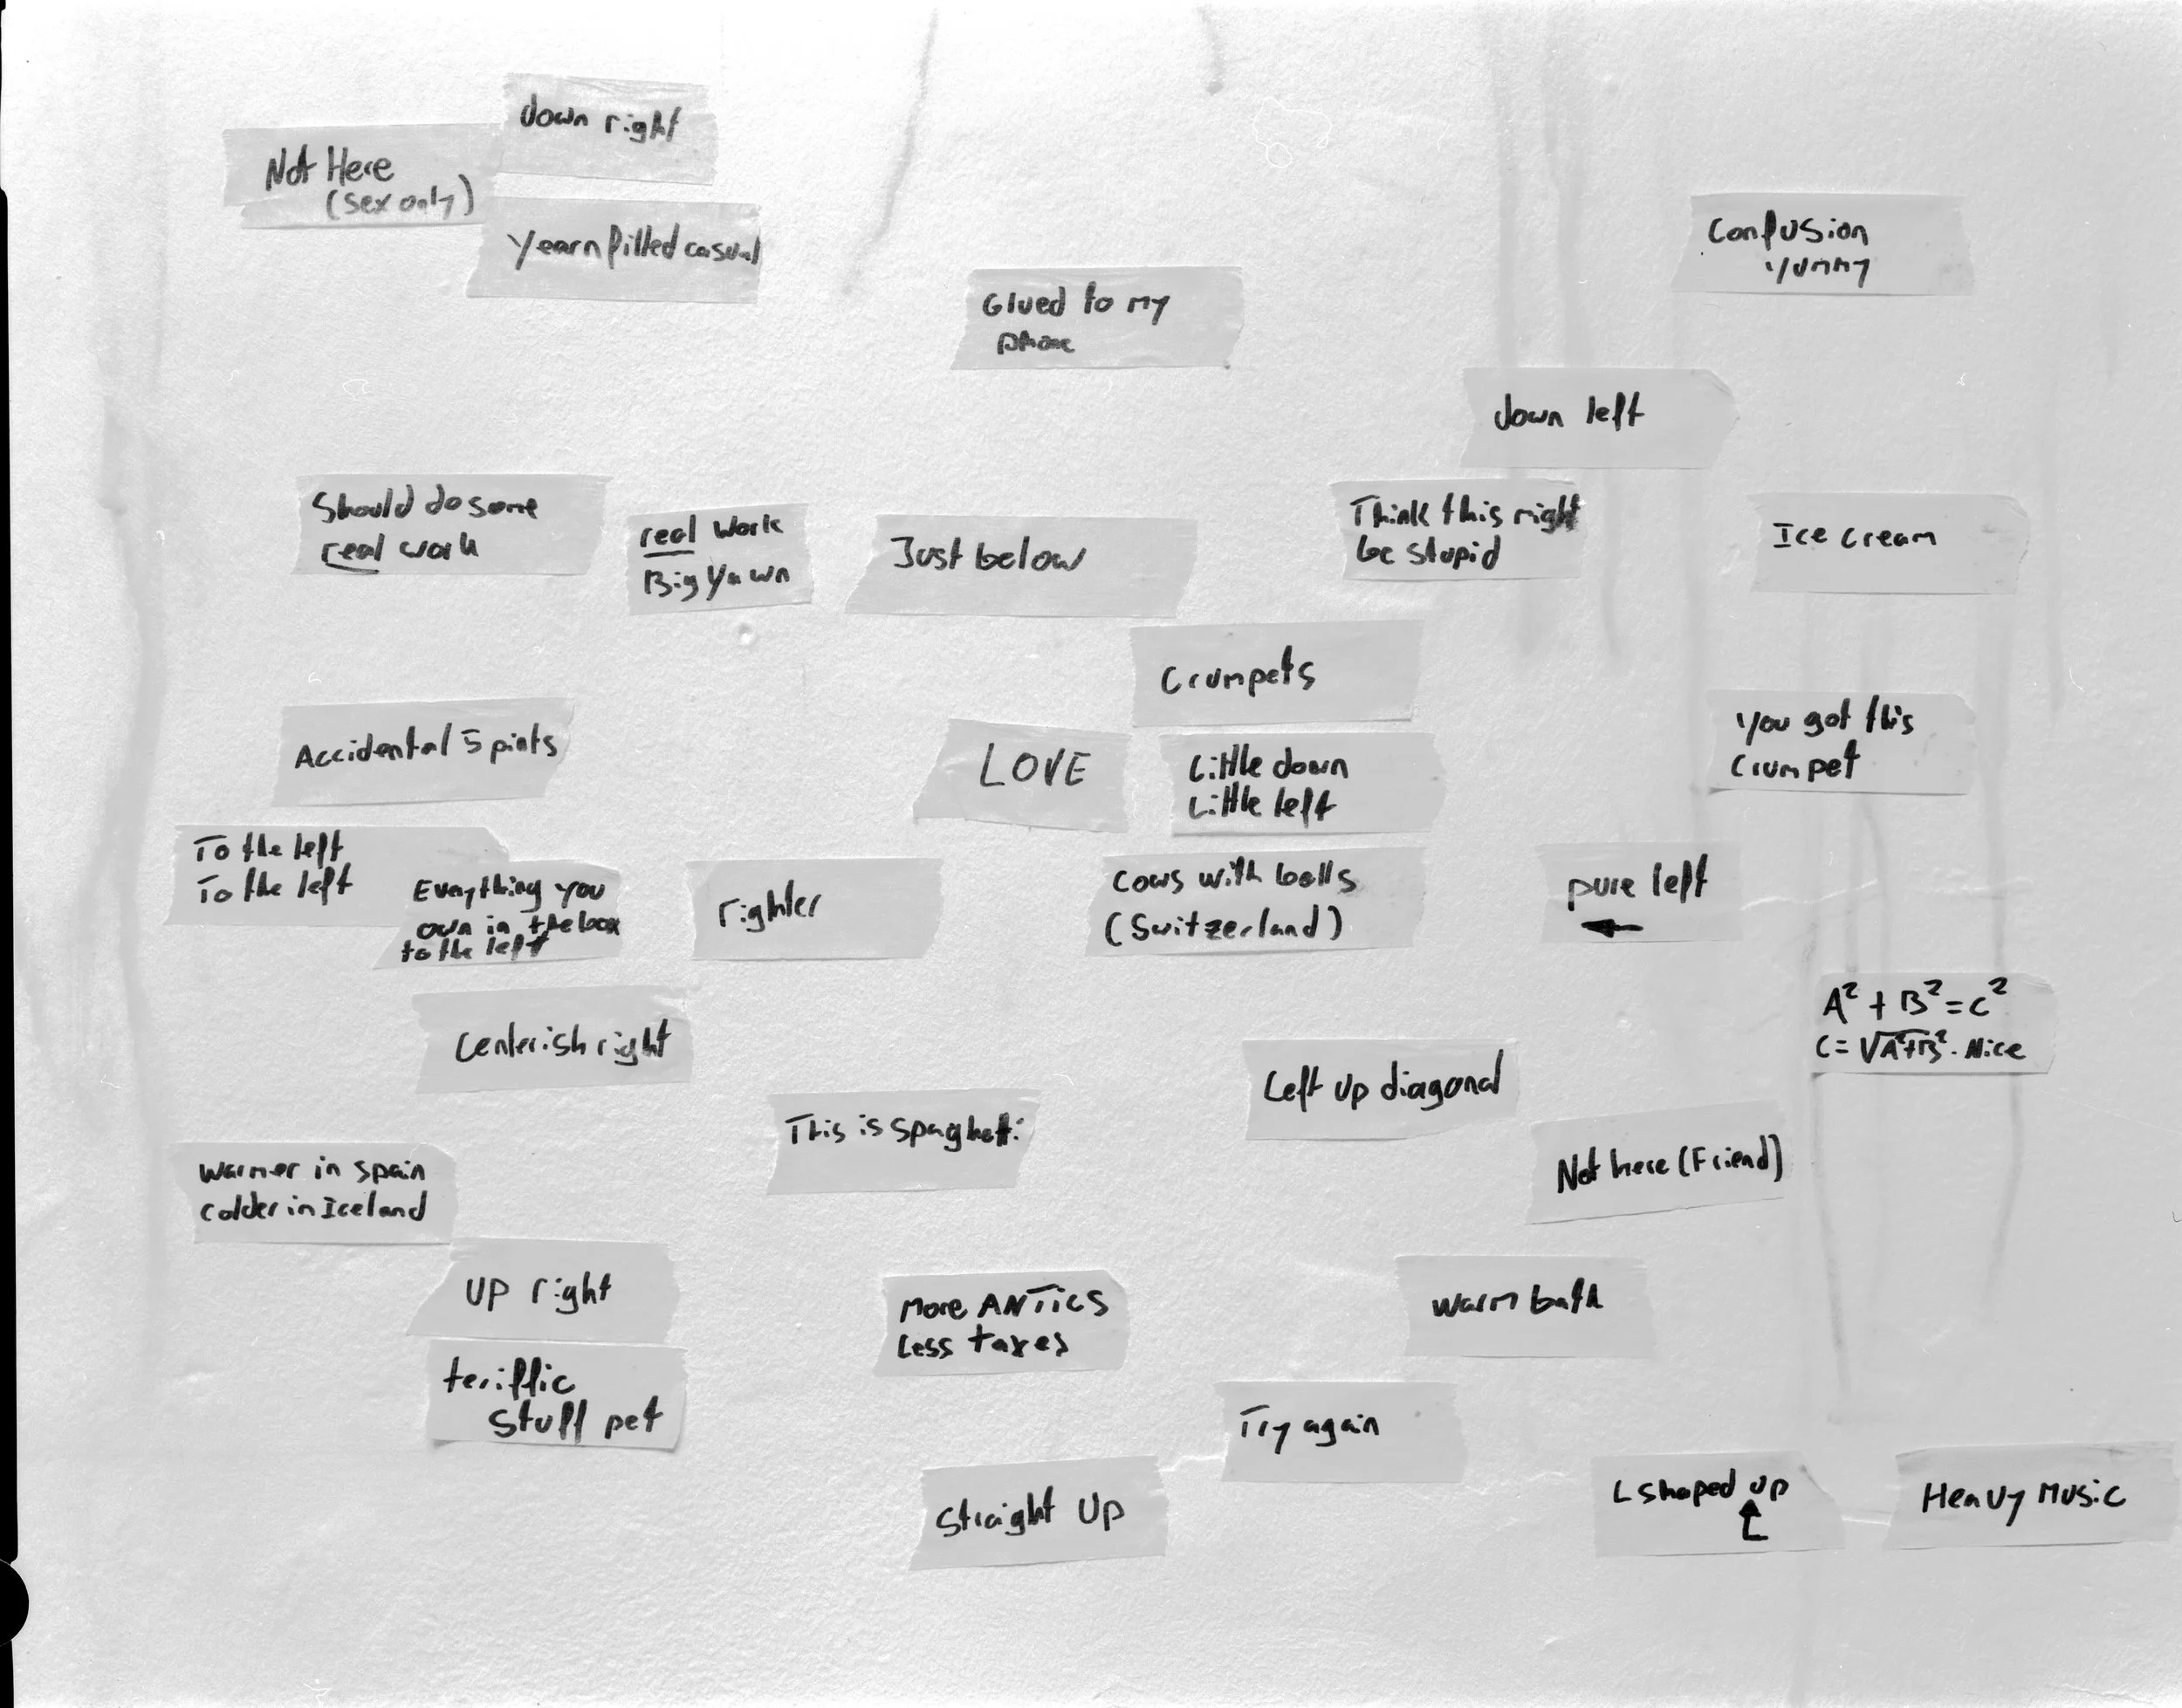 down right
Not Here
(sex only)
Yearnfilled casual
Confusion
yummy
Glued to my
phone
down left
Should do some
real work
real work
Big Yawn
Just below
Think this might
be stupid
Ice cream
Crumpets
Accidental 5 pints
LOVE
Little down
Little left
You got this
crumpet
To the left
To the left
Everything you
own in the box
to the left
righter
Cows with bells
(Switzerland)
pure left
A² + B² = C²
C = √A²+B². Nice
Centerish right
Left up diagonal
This is spaghetti
Not here (Friend)
Warmer in Spain
colder in Iceland
UP right
More ANTICS
Less taxes
warm bath
teriffic
stuff pet
Try again
Straight UP
L shaped up
Heavy Music